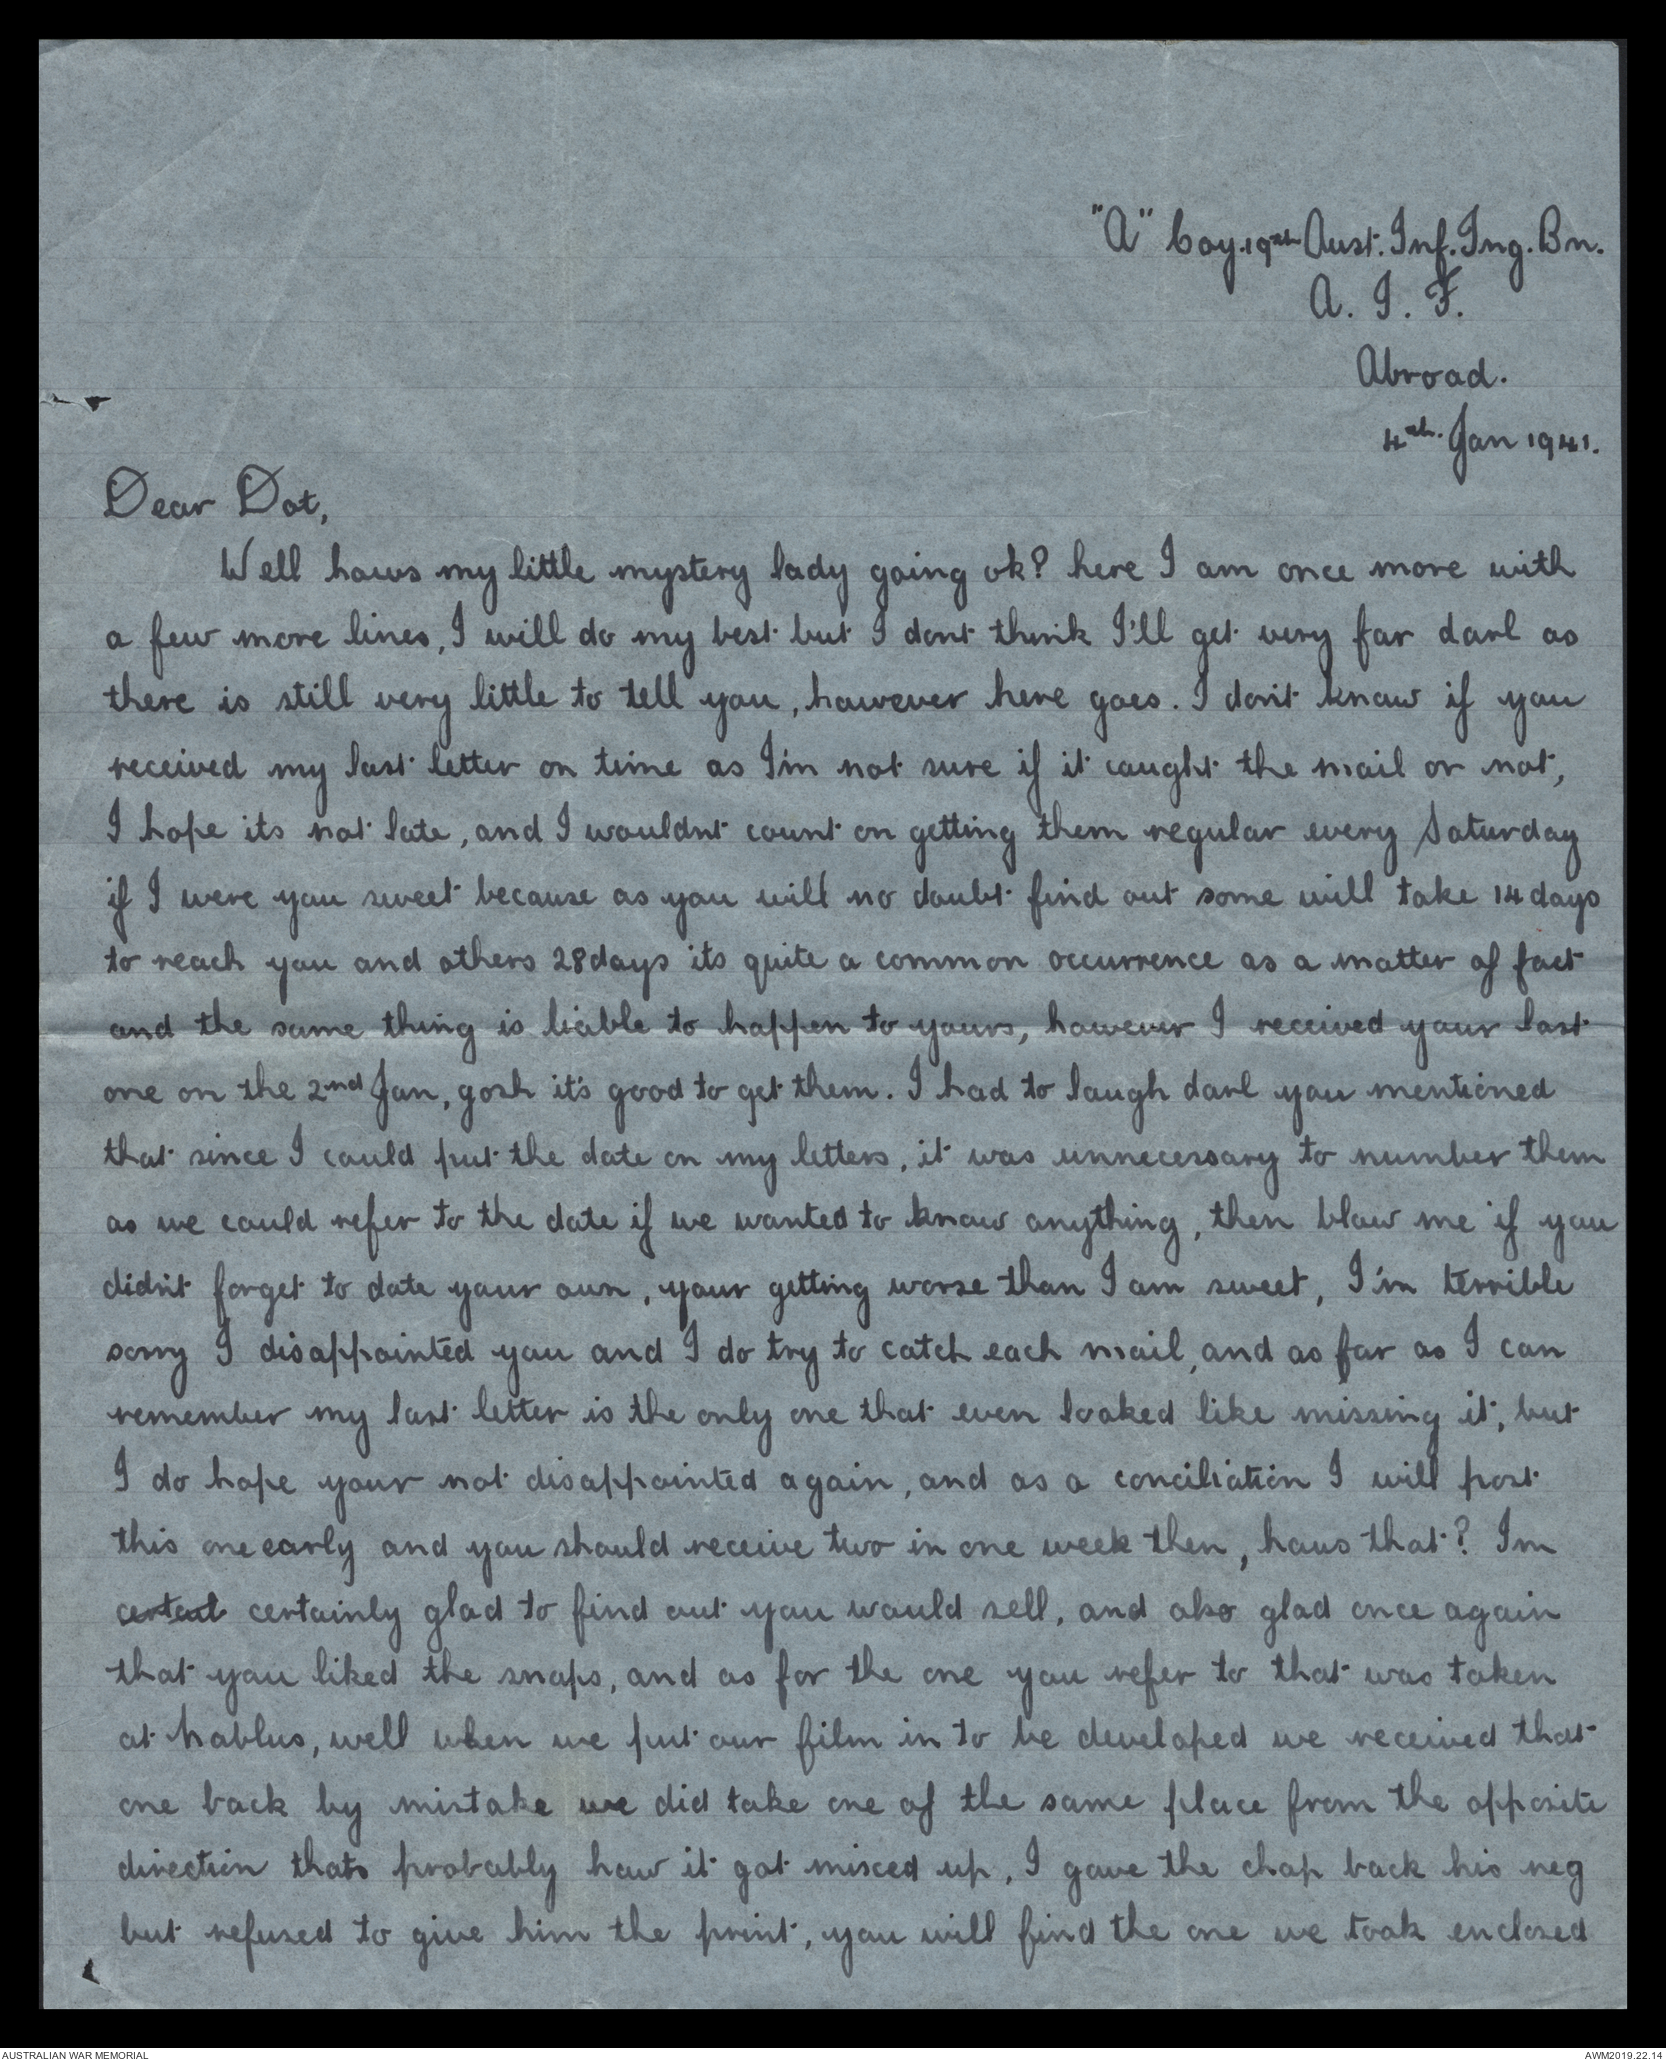 "A" Coy. 19th Aust. Inf. Tng. Bn.
A. I. F.
Abroad.
4th. Jan 1941.
Dear Dot,
Well hows my little mystery lady going ok? here I am once more with
a few more lines, I will do my best but I dont think I'll get very far darl as
there is still very little to tell you, however here goes. I don't know if you
received my last letter on time as I'm not sure if it caught the mail or not,
I hope its not late, and I wouldnt count on getting them regular every Saturday
if I were you sweet because as you will no doubt find out some will take 14 days
to reach you and others 28 days its quite a common occurrence as a matter of fact
and the same thing is liable to happen to yours, however I received your last
one on the 2nd Jan, gosh it's good to get them. I had to laugh darl you mentioned
that since I could put the date on my letters, it was unnecessary to number them
as we could refer to the date if we wanted to know anything, then blow me if you
didn't forget to date your own, your getting worse than I am sweet, I'm terrible
sorry I disappointed you and I do try to catch each mail, and as far as I can
remember my last letter is the only one that even looked like missing it, but
I do hope your not disappointed again, and as a conciliation I will post
this one early and you should receive two in one week then, hows that? Im
certainly glad to find out you would sell, and also glad once again
that you liked the snaps, and as for the one you refer to that was taken
at Nablus, well when we put our film in to be developed we received that
one back by mistake we did take one of the same place from the opposite
direction thats probably how it got misced up, I gave the chap back his neg
but refused to give him the print, you will find the one we took enclosed
AUSTRALIAN WAR MEMORIAL
AWM2019.22.14